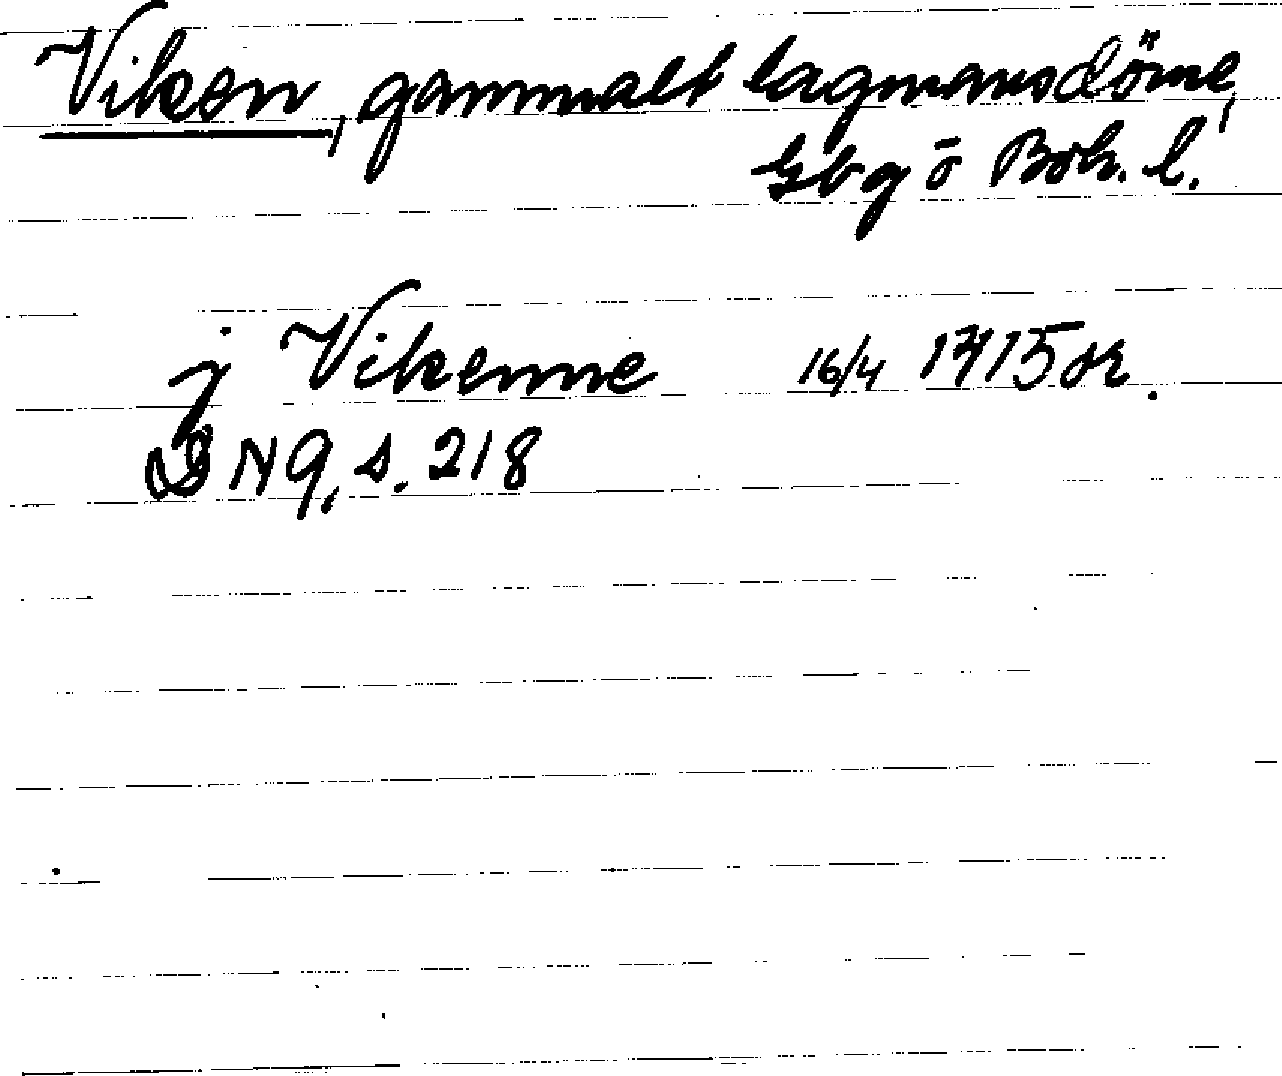 Viken, gammalt lagmansdöme,
Gbg o Boh. l.
j Vikenne 16/4 1415 or.
DN 9, s. 218